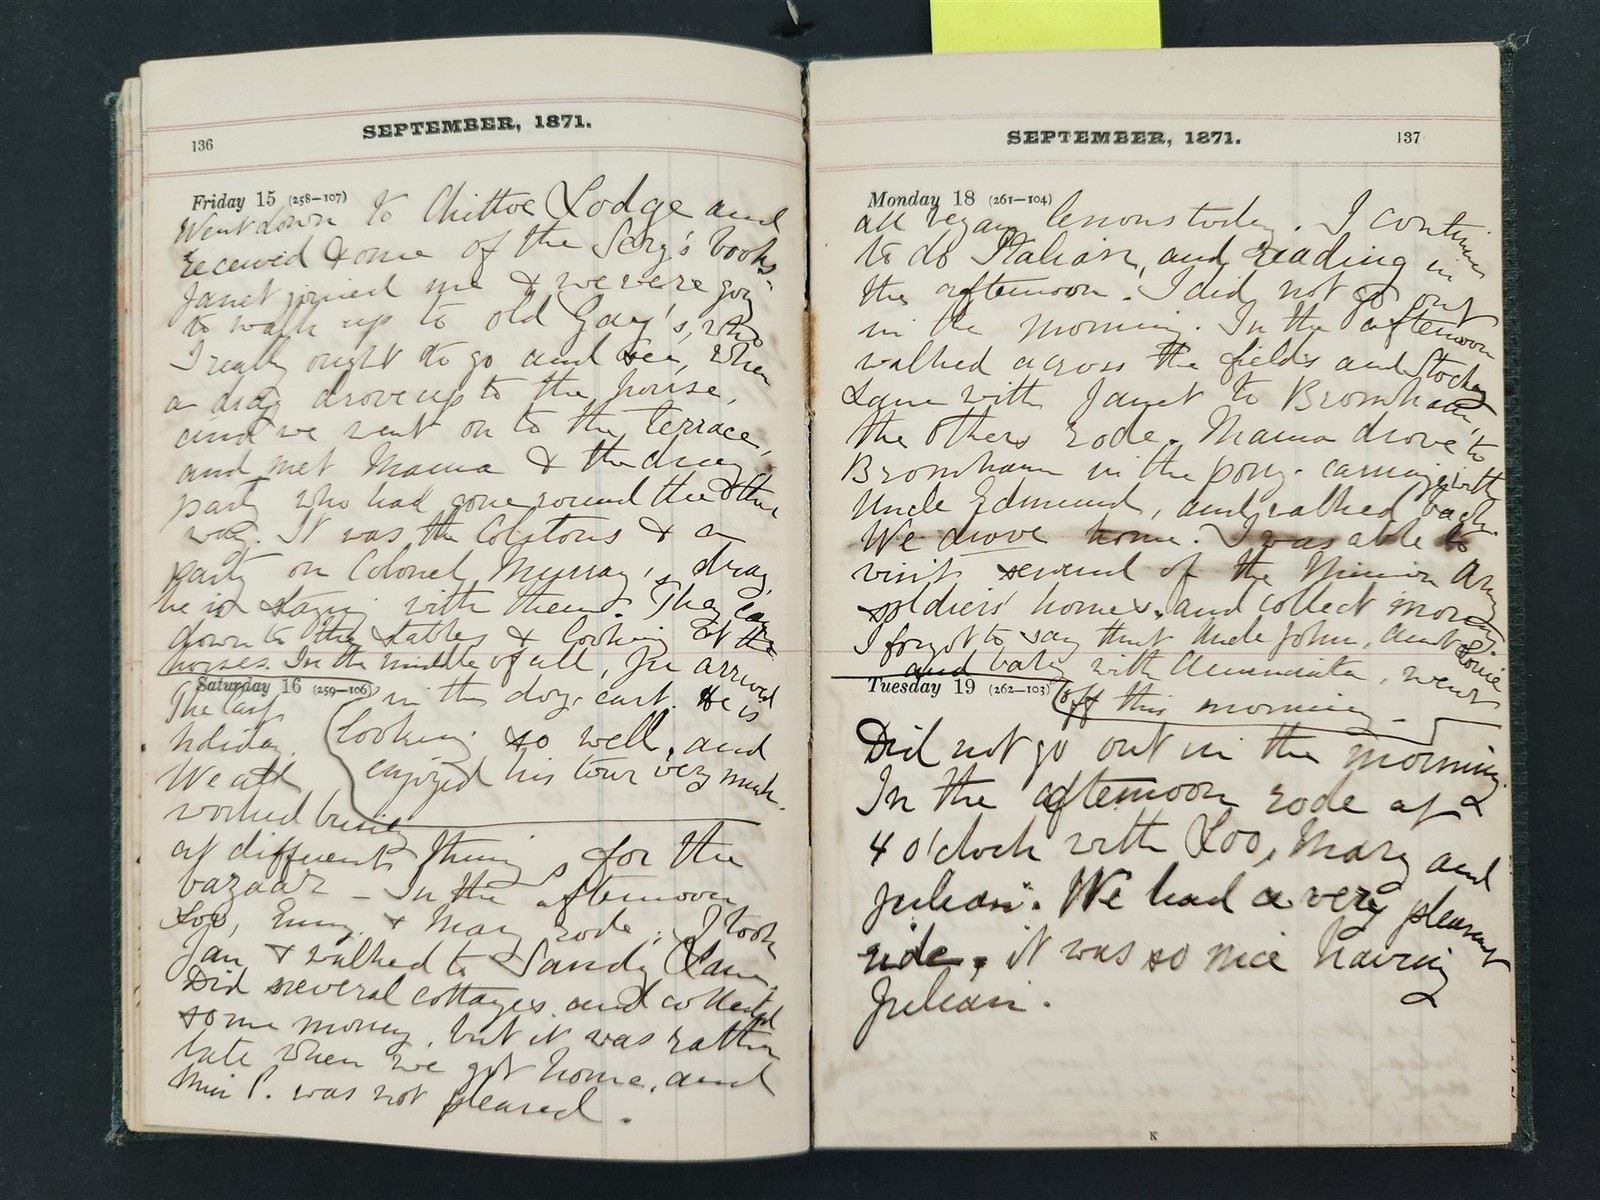 136
SEPTEMBER, 1871.
Friday 15 (258—107)
Went down to Chittoe Lodge and
received some of the Serg's books
Janet joined me & we were going
to walk up to old Gay's, who
I really ought to go and see, when
a drag drove up to the house,
and we went on to the terrace,
and met Mama & the drag
party who had gone round the other
way. It was the Colstons & a
party on Colonel Murray's drag,
he is staying with them. They came
down to the stables & looking at the
horses. In the middle of all, Ju arrived
Saturday 16 (259—106)
in the dog-cart. He is
looking so well, and
enjoyed his tour very much.
The last
holiday.
We all
worked busily
at different things for the
bazaar – In the afternoon
Loo, Emmy & Mary rode; I took
Jan & walked to Sandy Lane,
Did several cottages and collected
some money, but it was rather
late when we got home, and
Miss P. was not pleased.
SEPTEMBER, 1871.
137
Monday 18 (261—104)
all began lessons today. I continue
to do Italian, and reading in
the afternoon. I did not go out
in the morning. In the afternoon
walked across the fields and Stockey
Lane with Janet to Bromham,
the others rode. Mama drove to
Bromham in the pony-carriage with
Uncle Edmund, and walked back.
We drove home. I was able to
visit several of the Minion Army
soldiers' homes, and collect money.
I forgot to say that Uncle John, Aunt Louie
and baby with Annunciata, went
off this morning –
Tuesday 19 (262—103)
Did not go out in the morning
In the afternoon rode at
4 o'clock with Loo, Mary and
Julian. We had a very pleasant
ride, it was so nice having
Julian.
K